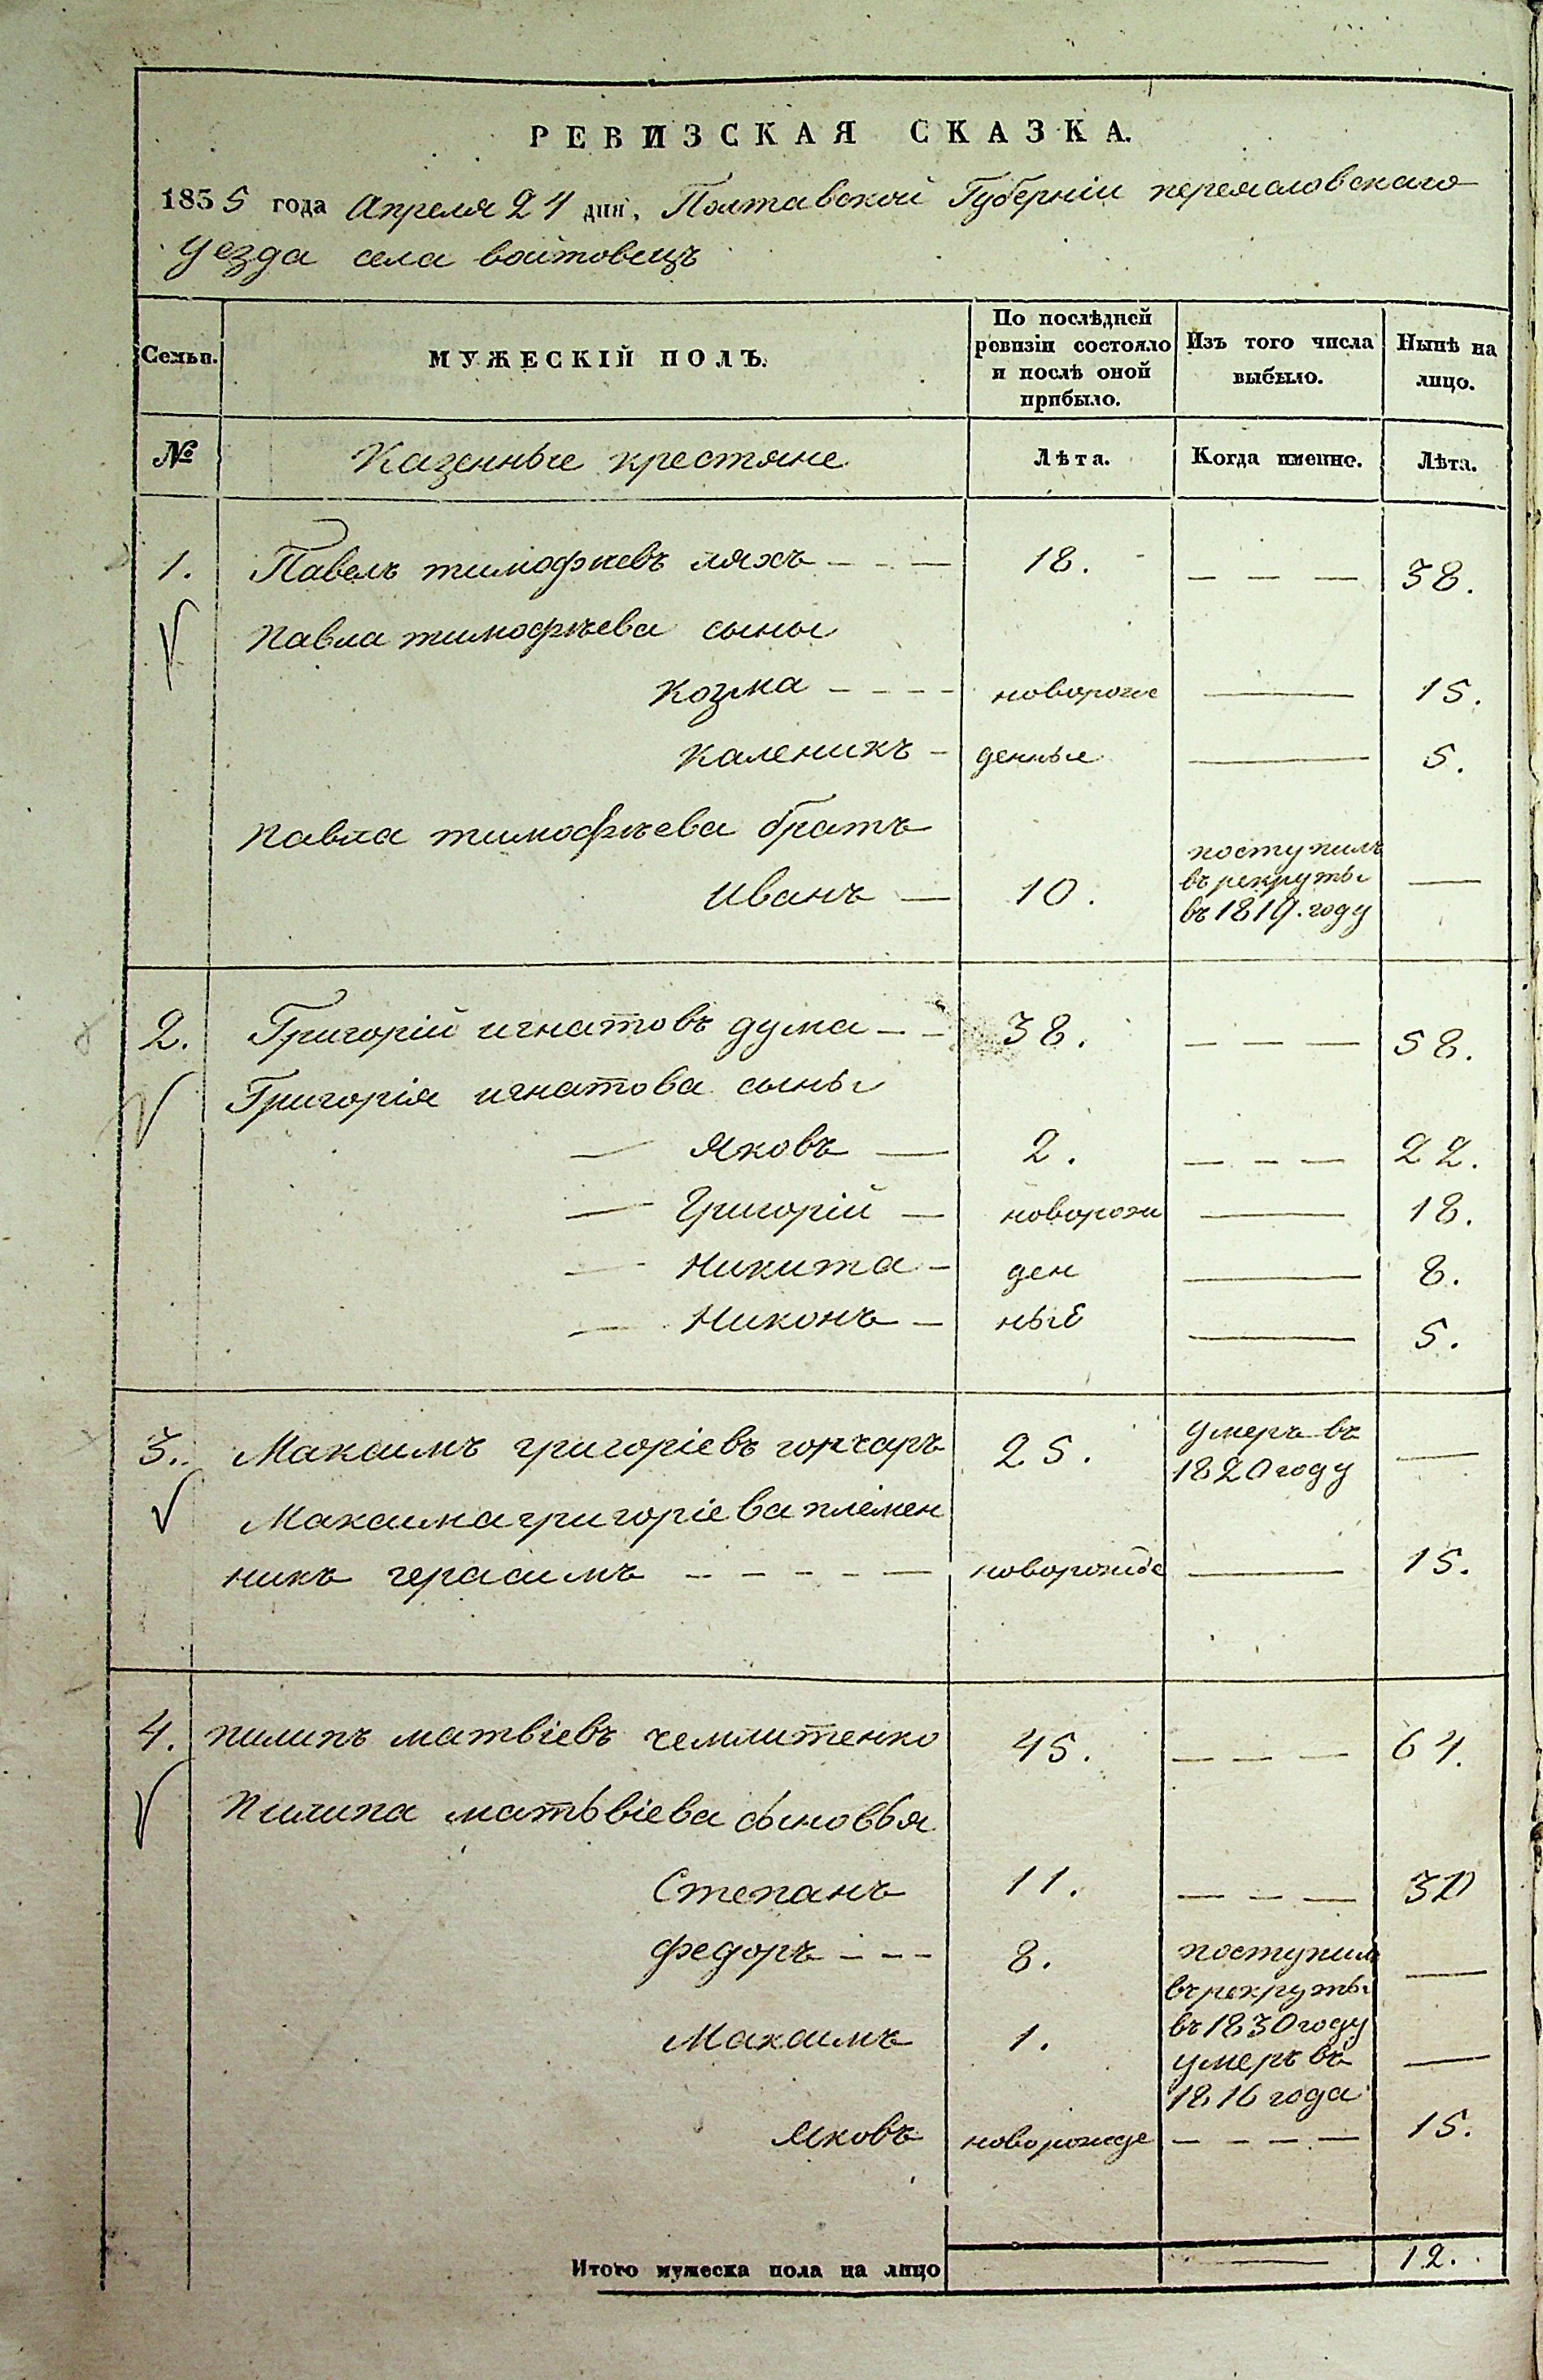 РЕВИЗСКАЯ СКАЗКА.
1835 года Апреля 24 дня, Полтавской Губерніи переясловского
Уезда села воитовецъ
Семьи. МУЖЕСКІЙ ПОЛЪ. По послѣдней ревизіи состояло и послѣ оной прибыло. Изъ того числа выбыло. Нынѣ на лицо.
№ Казенные крестяне Лѣта. Когда именно. Лѣта.
1. Павелъ тимофиевъ ляхъ 18. — — — 38.
Павла тимофѣева сыны
Козма новорож — 15.
Каленикъ денные — 5.
Павла тимофѣева братъ
Иванъ — 10. поступилъ въ рекруты въ 1819. году —
2. Григорій игнатовъ дума 38. — — — 58.
Григорія игнатова сыны
— Яковъ — 2. — — — 22.
— Григорій — новорож — 18.
— Никита — ден — 8.
— Никонъ — ные — 5.
3. Максимъ григоріевъ гончаръ 25. умеръ въ 1820 году —
Максима григоріева племен
никъ герасимъ новорожде — 15.
4. пилипъ матвіевъ 45. — — — 64.
Пилипа матьвіева сыновья
Степанъ 11. — — —
федоръ 8. поступил въ рекруты въ 1830 году —
Максимъ 1. умеръ въ 1816 года —
Яковъ новорожде — — — — 15.
Итого мужеска пола на лицо — 12.